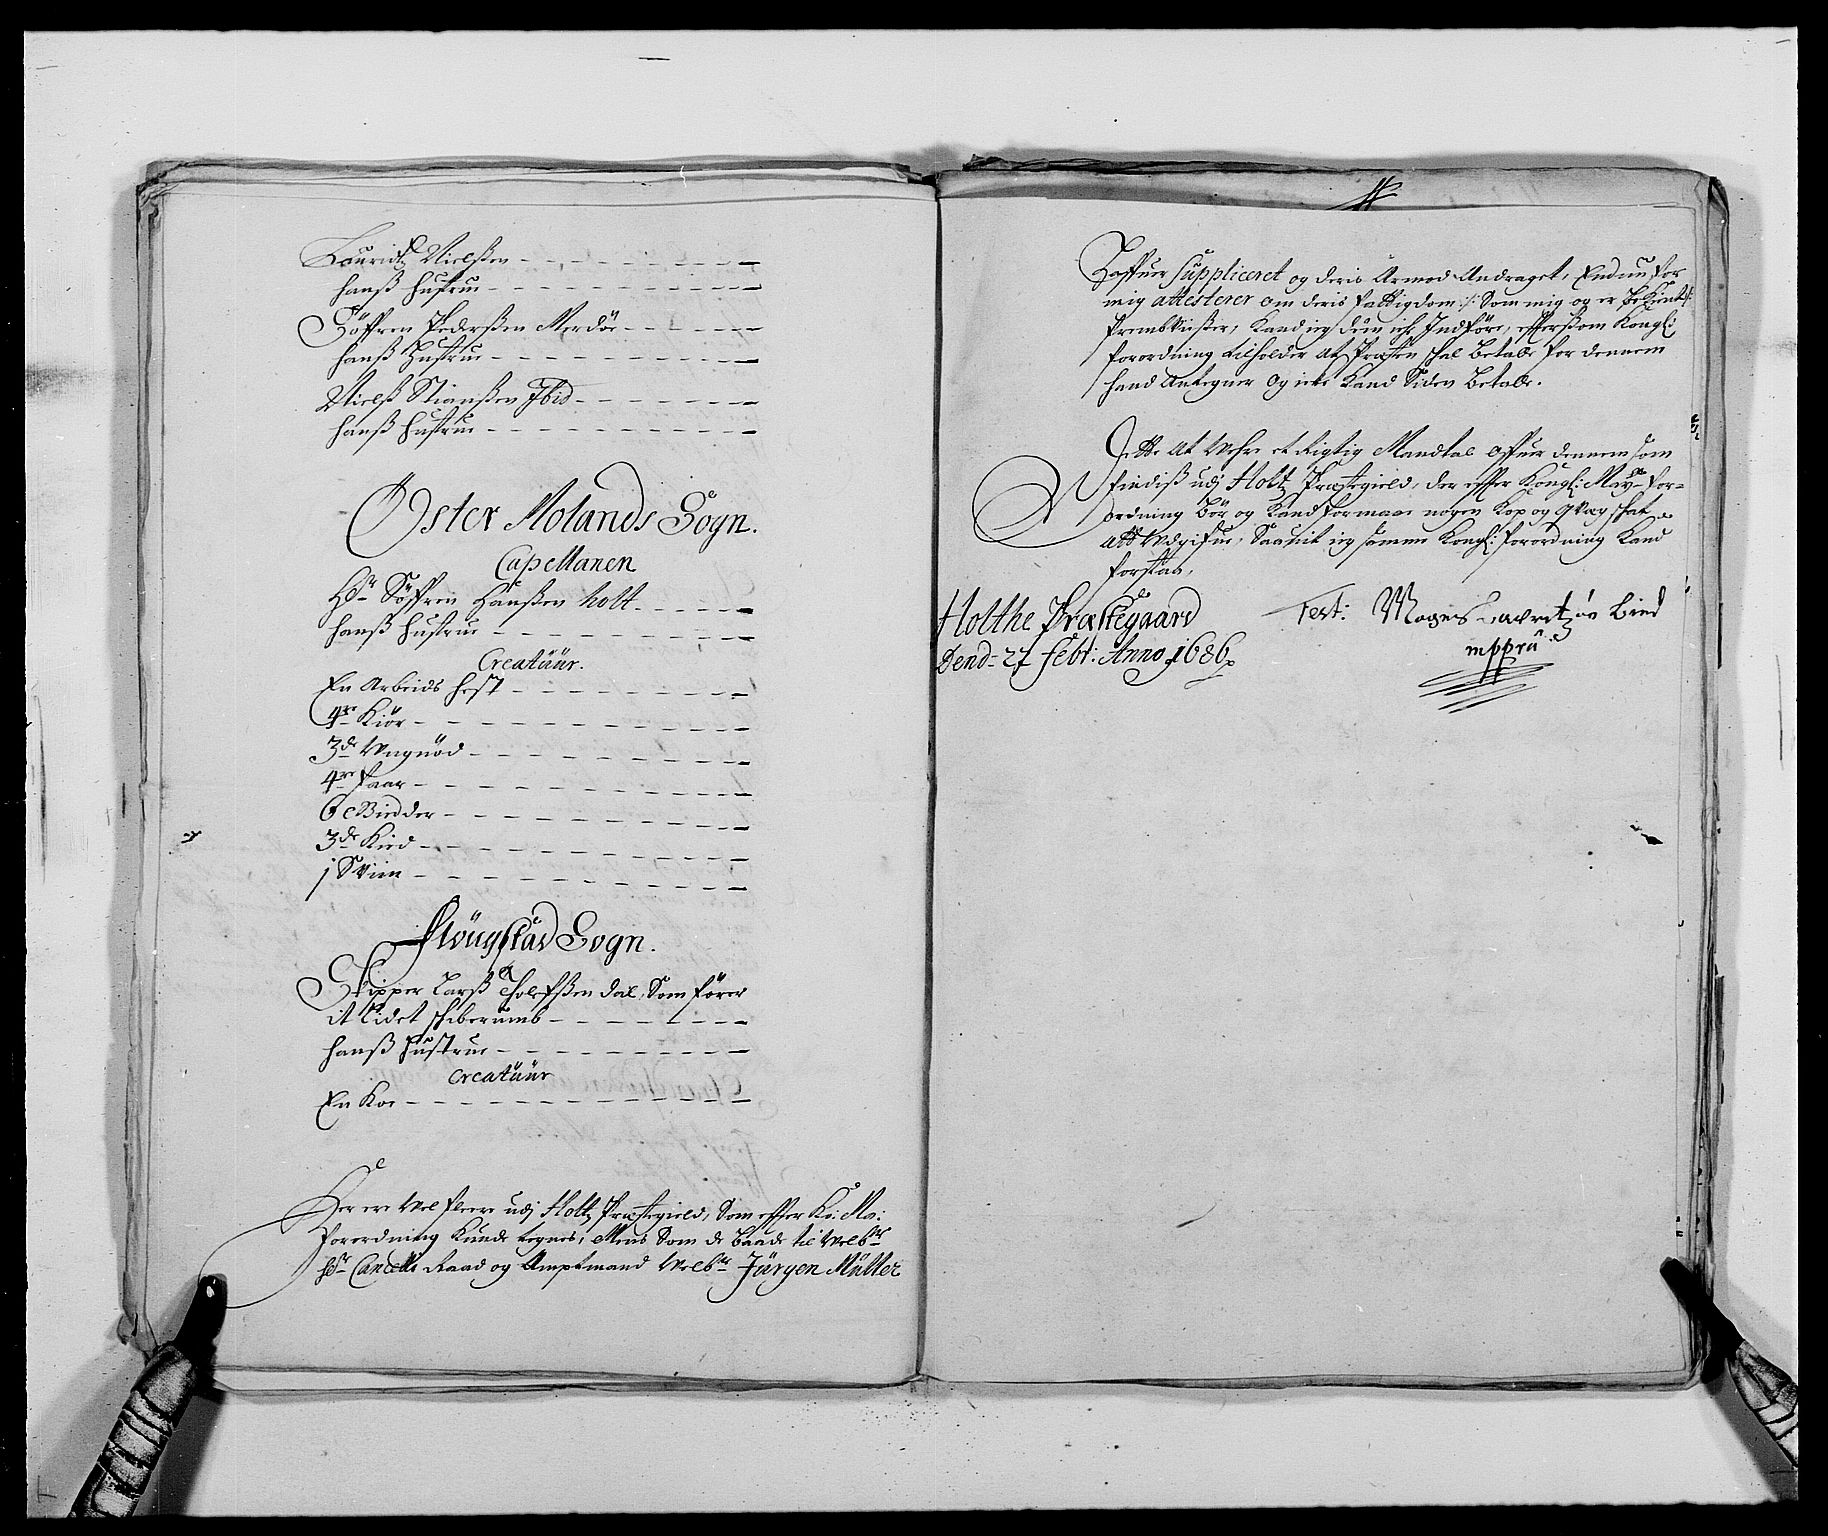 Louridtz Nielßen - - - - - - - -
hanß hustrue - - - - - - - - -
Söffren Pederßen Merdöe - - - - -
hanß Hustrue - - - - - - - - -
Nielß Stianßen Ibid - - - - - - -
hanß hustrue - - - - - - - - -
Öster Molands Sogn.
Capellanen
Hr Söffren Hanßen holt - - - - -
hanß hustrue - - - - - - - - -
Creatüür.
En Arbeids hest - - - - - - - -
4re Kiör - - - - - - - - - - -
3de Ungnöd - - - - - - - - -
4re faar - - - - - - - - - - -
6 Bieder - - - - - - - - - -
3de Kied - - - - - - - - - - -
1 Sviin - - - - - - - - - - -
Flöugstad Sogn.
Skipper Larß Tholfßen dal, Som förer
it lidet schiberumb - - - - - - -
hanß hustrue - - - - - - - - -
Creatüür
En Koe - - - - - - - - - - -
Her ere vel fleere udj Holtz Præstegield, Som effter Ko: Ma:
forordning kunde tegnes, Mens Som de baade til Velbne
hr Cancelli Raad og Amptmand Velbne Jürgen Müller
Haffuer Suppliceret og deris Armod Andraget, End nu for
mig attesterer om deris fattigdom :/: Som mig og er bekiendt :/:
fremb viser, kand ieg dem ich Indföre, effterßom Kongl:
forordning tilholder at Præsten schal betale for dennem
hand Antegner og icke kand Siden betale.
Dette at vehre et Rigtig Mandtal offuer dennem som
findiß udj Holtz Præstegield, der effter Kongl: Maytz for=
ordning bör og kand formaae nogen Kop og qvæg schat
att udgifue, Saavit ieg samme Kongl: forordning kand
forstaa,
Holthe Præstegaard
Dend 27 Febr: Anno 1686
Test: Mogns Lauritzøn
mppria